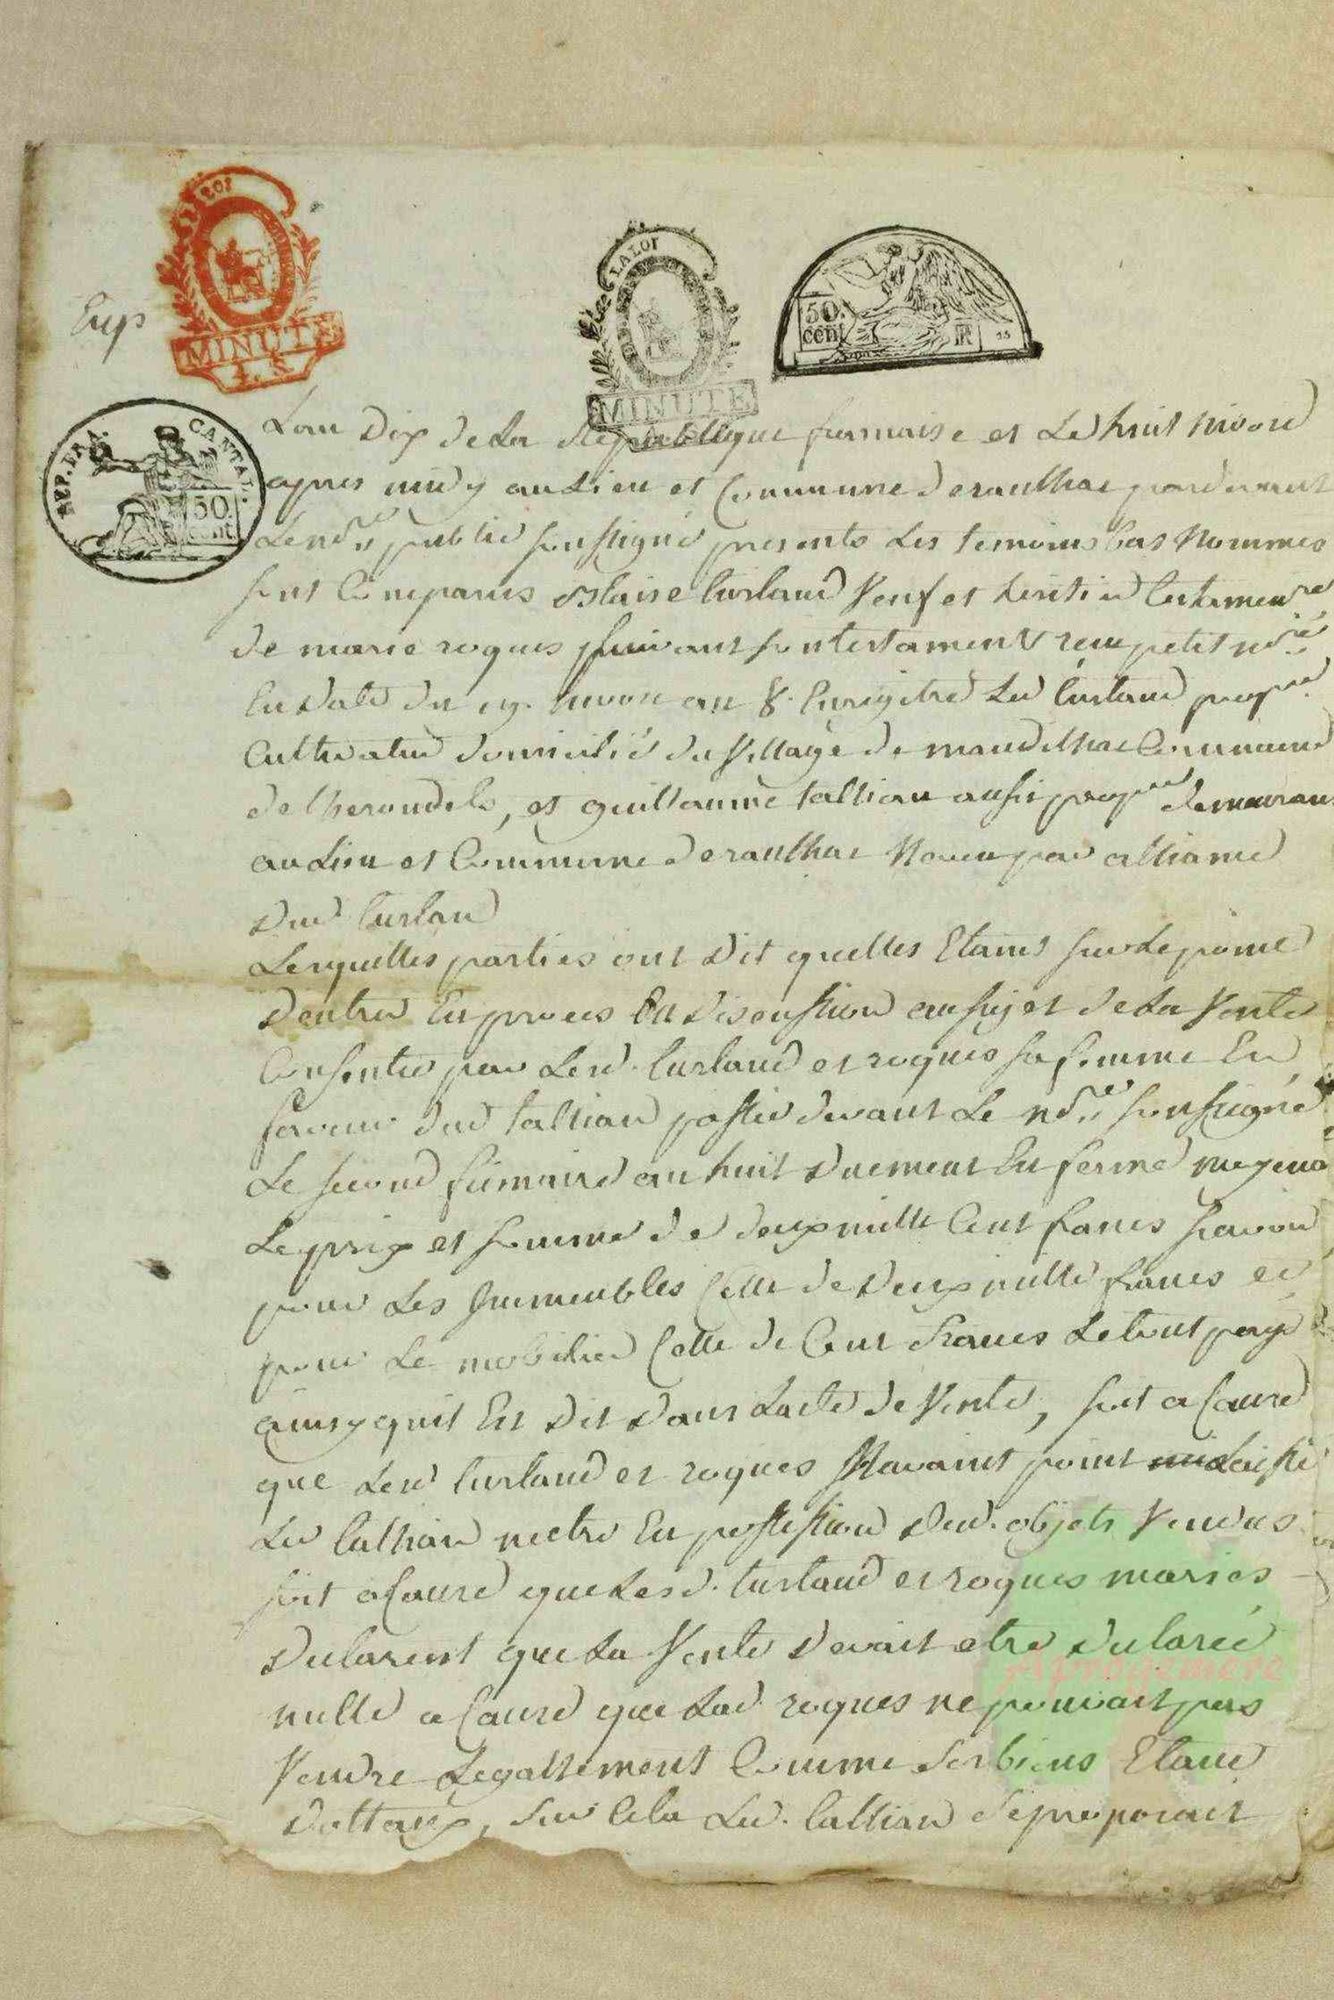 LA LOI
MINUTE
Exp
LA LOI
MINUTE
50. cent
REP. FRA. CANTAL.
50. cent
Lan Dix de La Republique francaise et Le huit nivose
apres midy au Lieu et Commune de raulhac pardevant
Le nore public soussigné presents Les temoins bas Nommes
sont Comparus Blaise Curland Veuf et heritier testamenre
de marie roques suivant son testament recu petit nore
En date du 19. nivose an 8. Enregitré Led Curland propre
Cultivateur domicilié du Village de maudilhac Commune
de Cherondels, et guillaume tallian aussi propre demeuran
au Lieu et Commune de raulhac Neveu par alliance
dud Curland
Lesquelles parties ont dit quelles Etaint sur Le point
dentrer En proces En discussion au sujet de La Vente
Consentie par Led. Curland et roques sa femme En
faveur dud tallian passée devant Le nore soussigné
Le second frimaire an huit duement En formé moyenn
Le prix et somme de deux mille Cent francs savoir
pour Les Immeubles Celle de deux mille francs et
pour Le mobilier Celle de Cent francs Le tout payé
ainsy quil Est dit dans Lacte de Vente, soit a Cause
que Led Curland et roques Navaint point Laissé
Led tallian metre En possession desd. objets Vendus
soit a Cause que Lesd. Curland et roques maries
declarent que La Vente devait etre declareé
nulle a Cause que Lad. roques ne pouvait pas
Vendre Legallement Comme ses biens Etant
dottaux, sur Cela Led. tallian se proposait
Apronemere